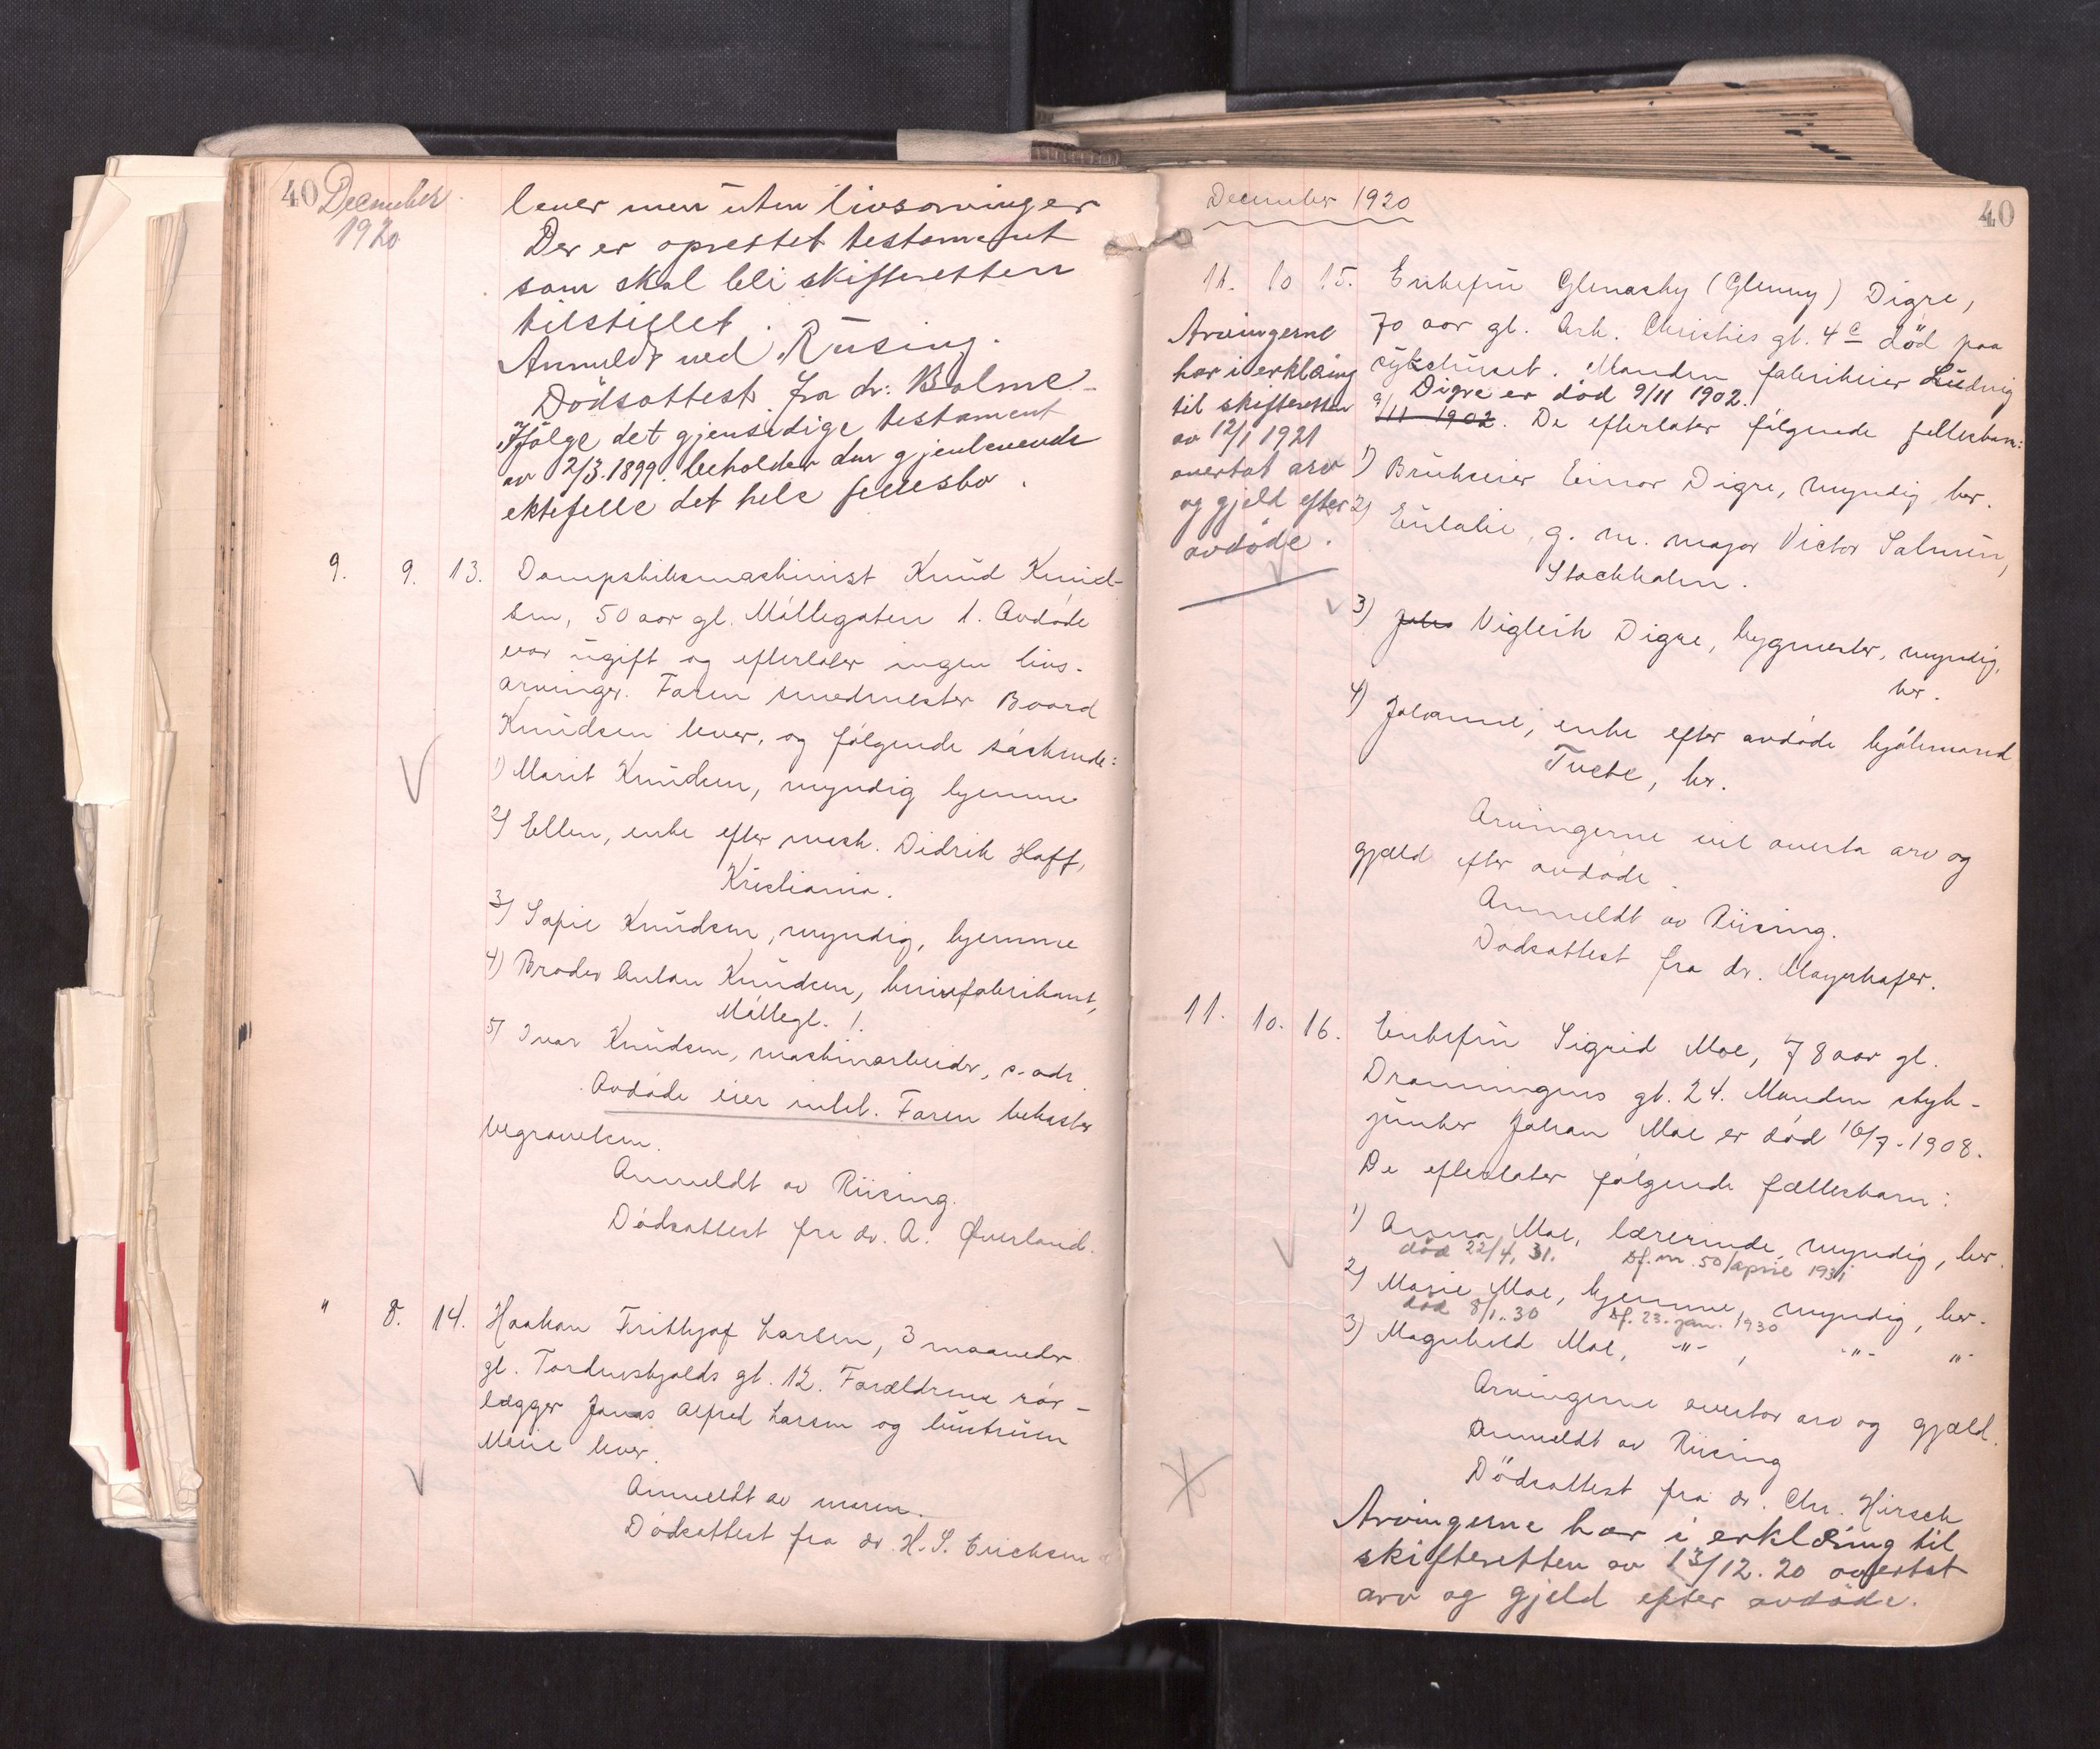 40 December
1920
lever men uten livsarvinger
Der er oprettet testament
som skal bli skifteretten
tilstillet.
Anmeldt ved Riising.
Dödsattest fra dr: Holme
Ifölge det gjensidige testament
av 2/3.1899. beholder den gjenlevende
ektefelle det hele fellesbo.
9. 9. 13. Dampskibsmaskinist Knud Knud-
sen, 50 aar gl. Möllegaten 1. Avdöde
var ugift og efterlater ingen livs-
arvinger. Faren smedmester Baard
Knudsen lever, og fölgende söskende:
1) Marit Knudsen, myndig hjemme
2) Ellen, enke efter mask. Didrik Hoff,
Kristiania.
3) Sofie Knudsen, myndig, hjemme
4) Broder Anton Knudsen, fabrikant,
Möllegt. 1.
5) Ivar Knudsen, maskinarbeider, s. adr.
Avdöde eier intet. Faren bekoster
begravelsen.
Anmeldt av Riising.
Dödsattest fra dr. A. Øverland.
" 8. 14. Haakon Frithjof Larsen, 3 maaneder
gl. Tordenskjolds gt. 12. Forældrene rör-
lægger Jonas Alfred Larsen og hustruen
Marie lever.
Anmeldt av moren.
Dödsattest fra dr. H. S. Erichsen
December 1920
40
11. 10 15. Enkefru Glenasky (Glenny) Digre,
70 aar gl. Ark. Christies gt. 4c död paa
sykehuset. Manden fabrikeier Ludvig
Digre er död 9/11 1902.
9/11 1902. De efterlater fölgende fellesbarn:
1) Brukseier Einar Digre, myndig her.
2) Eulalie, g. m. major Victor Salmén,
Stockholm.
3) Johs Vigleik Digre, bygmester, myndig,
her.
4) Johanne, enke efter avdöde kjöbmand
Tvete, her.
Arvingerne vil overta arv og
gjæld efter avdöde.
Anmeldt av Riising.
Dödsattest fra dr. Mayerhofer.
Arvingerne
har i erklæring
til skifteretten
av 12/1 1921
overtat arv
og gjeld efter
avdöde.
11. 10. 16. Enkefru Sigrid Moe, 78 aar gl.
Dronningens gt. 24. Manden styk-
junker Johan Moe er död 16/7-1908.
De efterlater fölgende fællesbarn:
1) Anna Moe, lærerinde, myndig, her.
död 22/4. 31. Df. nr. 50/april 1931
2) Marie Moe, hjemme, myndig, her.
död 8/1. 30 Df. 23. jan. 1930
3) Magnhild Moe, -"-, -"- "
Arvingerne overtar arv og gjæld.
Anmeldt av Riising
Dödsattest fra dr. Chr. Hirsch
Arvingerne har i erklæring til
skifteretten av 13/12. 20 overtat
arv og gjeld efter avdöde.